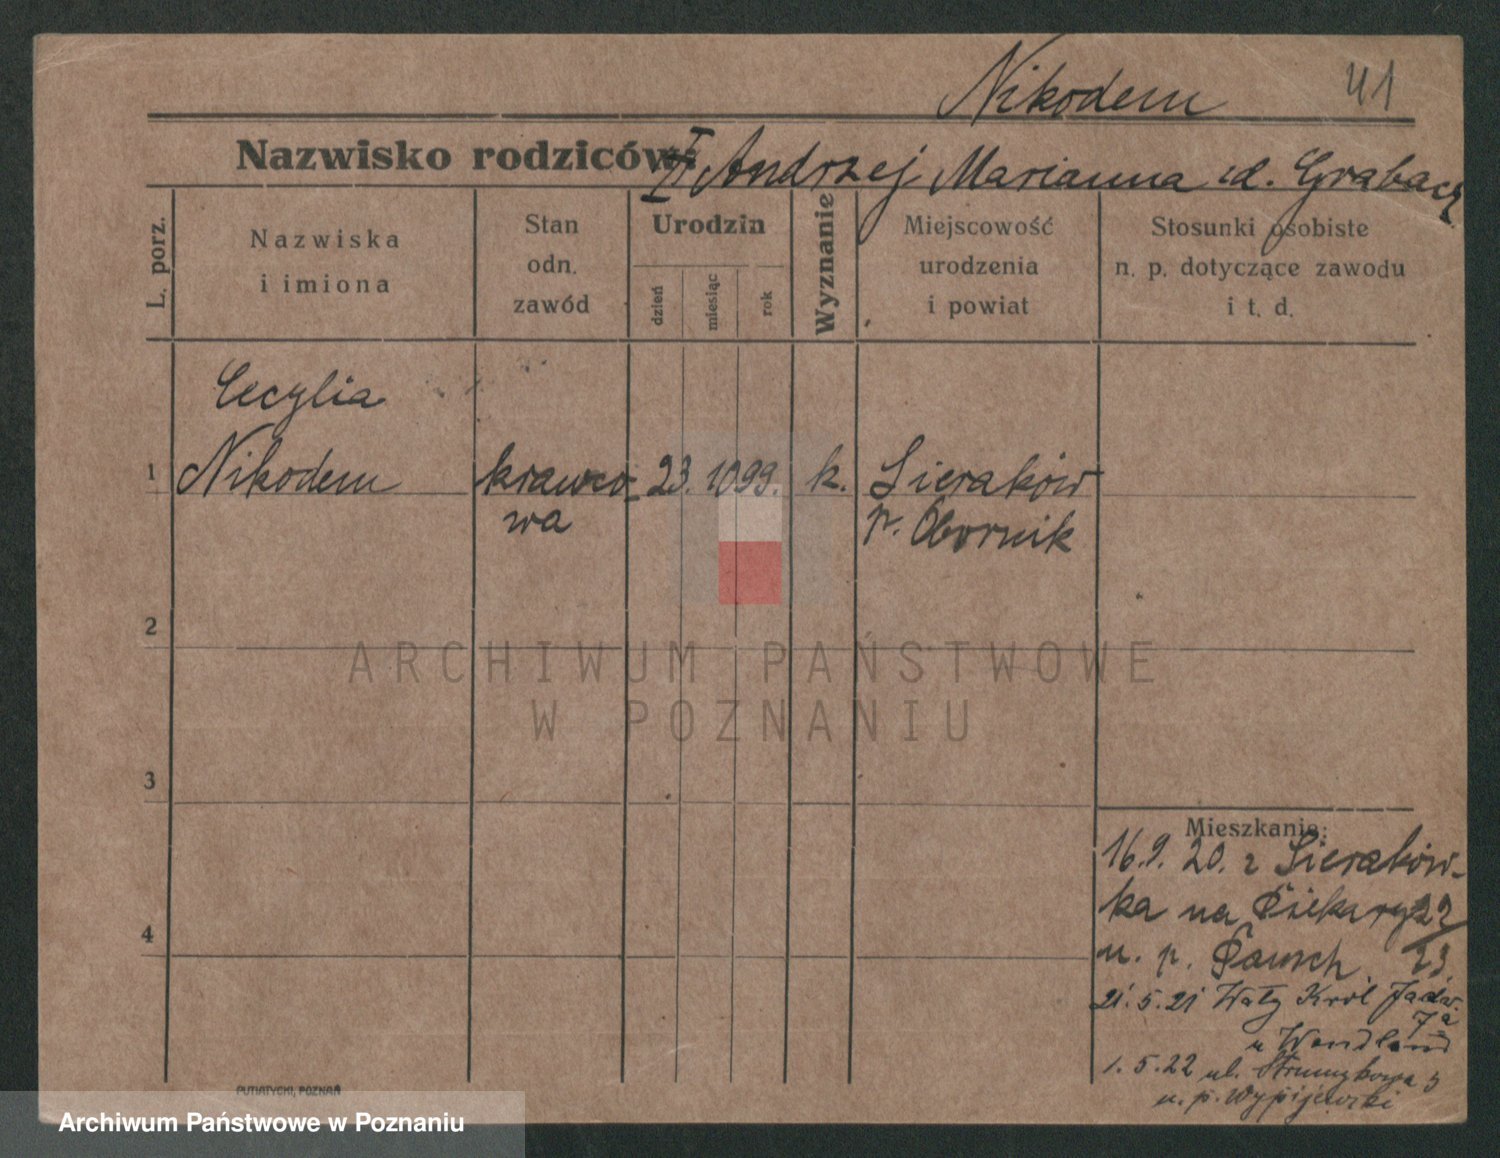 Nikodem 41
Nazwisko rodziców: Andrzej Marianna
L. porz.
Nazwiska
i imiona
Stan
odn.
zawód
Urodzin
dzień
miesiąc
rok
Wyznanie
Miejscowość
urodzenia
i powiat
Stosunki osobiste
n. p. dotyczące zawodu
i t. d.
Cecylia
1 Nikodem krawco- 23. 10 99. k. Sieraków
wa p. Obornik
2
ARCHIWUM PAŃSTWOWE
W POZNANIU
3
Mieszkanie:
16.9.20. z Sieraków-
ka na Piekary 22/23
u. p. Pausch
4
21.5.21 Wały Król Jadw.
7a
u Wendland
1.5.22 ul. Strumykowa
u. p. Wypijewski
PUTIATYCKI, POZNAŃ
Archiwum Państwowe w Poznaniu